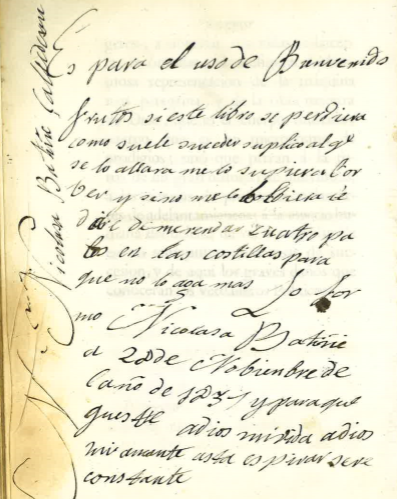 Es para el uso de Banvenido
frutos si este libro se perdiera
como suele suceder suplico al qe
se lo allara me lo supiera bor
ber y sino me lo bolbiera le
de merendar cuatro pa
los en las costillas para
que no lo aga mas Lo for
mo Nicolasa Batiñe
a 28 de Nobienbre de
año de 1837 y para que
guestte adios mi vida adios
mi amante asta espirar sere
constante
Nicolasa Batiñe